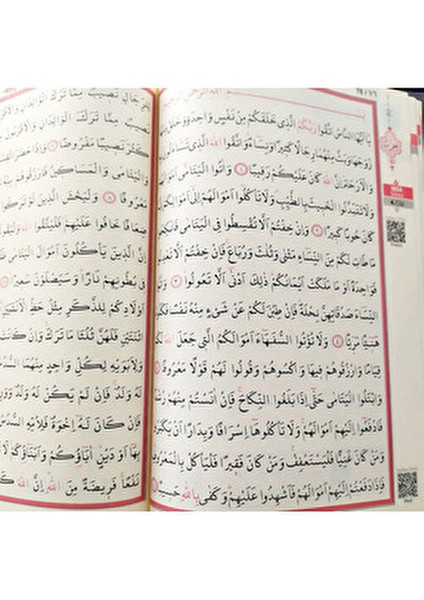 بِسْمِ اللّٰهِ الرَّحْمٰنِ الرَّحِيمِ
يَا اَيُّهَا النَّاسُ اتَّقُوا رَبَّكُمُ الَّذِي خَلَقَكُمْ مِنْ نَفْسٍ وَاحِدَةٍ وَخَلَقَ مِنْهَا
زَوْجَهَا وَبَثَّ مِنْهُمَا رِجَالًا كَثِيرًا وَنِسَاءً وَاتَّقُوا اللّٰهَ الَّذِي تَسَاءَلُونَ بِهِ
وَالْاَرْحَامَ اِنَّ اللّٰهَ كَانَ عَلَيْكُمْ رَقِيبًا ١ وَاٰتُوا الْيَتَامٰى اَمْوَالَهُمْ
وَلَا تَتَبَدَّلُوا الْخَبِيثَ بِالطَّيِّبِ وَلَا تَأْكُلُوا اَمْوَالَهُمْ اِلٰى اَمْوَالِكُمْ اِنَّهُ
كَانَ حُوبًا كَبِيرًا ٢ وَاِنْ خِفْتُمْ اَلَّا تُقْسِطُوا فِي الْيَتَامٰى فَانْكِحُوا
مَا طَابَ لَكُمْ مِنَ النِّسَاءِ مَثْنٰى وَثُلٰثَ وَرُبَاعَ فَاِنْ خِفْتُمْ اَلَّا تَعْدِلُوا
فَوَاحِدَةً اَوْ مَا مَلَكَتْ اَيْمَانُكُمْ ذٰلِكَ اَدْنٰى اَلَّا تَعُولُوا ٣ وَاٰتُوا
النِّسَاءَ صَدُقَاتِهِنَّ نِحْلَةً فَاِنْ طِبْنَ لَكُمْ عَنْ شَيْءٍ مِنْهُ نَفْسًا فَكُلُوهُ
هَنِيئًا مَرِيئًا ٤ وَلَا تُؤْتُوا السُّفَهَاءَ اَمْوَالَكُمُ الَّتِي جَعَلَ اللّٰهُ لَكُمْ
قِيَامًا وَارْزُقُوهُمْ فِيهَا وَاكْسُوهُمْ وَقُولُوا لَهُمْ قَوْلًا مَعْرُوفًا ٥
وَابْتَلُوا الْيَتَامٰى حَتّٰى اِذَا بَلَغُوا النِّكَاحَ فَاِنْ اٰنَسْتُمْ مِنْهُمْ رُشْدًا
فَادْفَعُوا اِلَيْهِمْ اَمْوَالَهُمْ وَلَا تَأْكُلُوهَا اِسْرَافًا وَبِدَارًا اَنْ يَكْبَرُوا
وَمَنْ كَانَ غَنِيًّا فَلْيَسْتَعْفِفْ وَمَنْ كَانَ فَقِيرًا فَلْيَأْكُلْ بِالْمَعْرُوفِ
فَاِذَا دَفَعْتُمْ اِلَيْهِمْ اَمْوَالَهُمْ فَاَشْهِدُوا عَلَيْهِمْ وَكَفٰى بِاللّٰهِ حَسِيبًا ٦
لِلرِّجَالِ نَصِيبٌ مِمَّا تَرَكَ الْوَالِدَانِ وَالْاَقْرَبُونَ
نَصِيبٌ مِمَّا تَرَكَ الْوَالِدَانِ وَالْاَقْرَبُونَ
كَثُرَ نَصِيبًا مَفْرُوضًا ٧ وَاِذَا حَضَرَ الْقِسْمَةَ
وَالْيَتَامٰى وَالْمَسَاكِينُ فَارْزُقُوهُمْ
مَعْرُوفًا ٨ وَلْيَخْشَ الَّذِينَ لَوْ
ضِعَافًا خَافُوا عَلَيْهِمْ فَلْيَتَّقُوا اللّٰهَ
اِنَّ الَّذِينَ يَأْكُلُونَ اَمْوَالَ الْيَتَامٰى
فِي بُطُونِهِمْ نَارًا وَسَيَصْلَوْنَ سَعِيرًا
اَوْلَادِكُمْ لِلذَّكَرِ مِثْلُ حَظِّ الْاُنْثَيَيْنِ
اثْنَتَيْنِ فَلَهُنَّ ثُلُثَا مَا تَرَكَ وَاِنْ كَانَتْ
وَلِاَبَوَيْهِ لِكُلِّ وَاحِدٍ مِنْهُمَا السُّدُسُ
لَهُ وَلَدٌ فَاِنْ لَمْ يَكُنْ لَهُ وَلَدٌ وَوَرِثَهُ
فَاِنْ كَانَ لَهُ اِخْوَةٌ فَلِاُمِّهِ السُّدُسُ
بِهَا اَوْ دَيْنٍ اٰبَاؤُكُمْ وَاَبْنَاؤُكُمْ لَا
نَفْعًا فَرِيضَةً مِنَ اللّٰهِ اِنَّ اللّٰهَ كَانَ